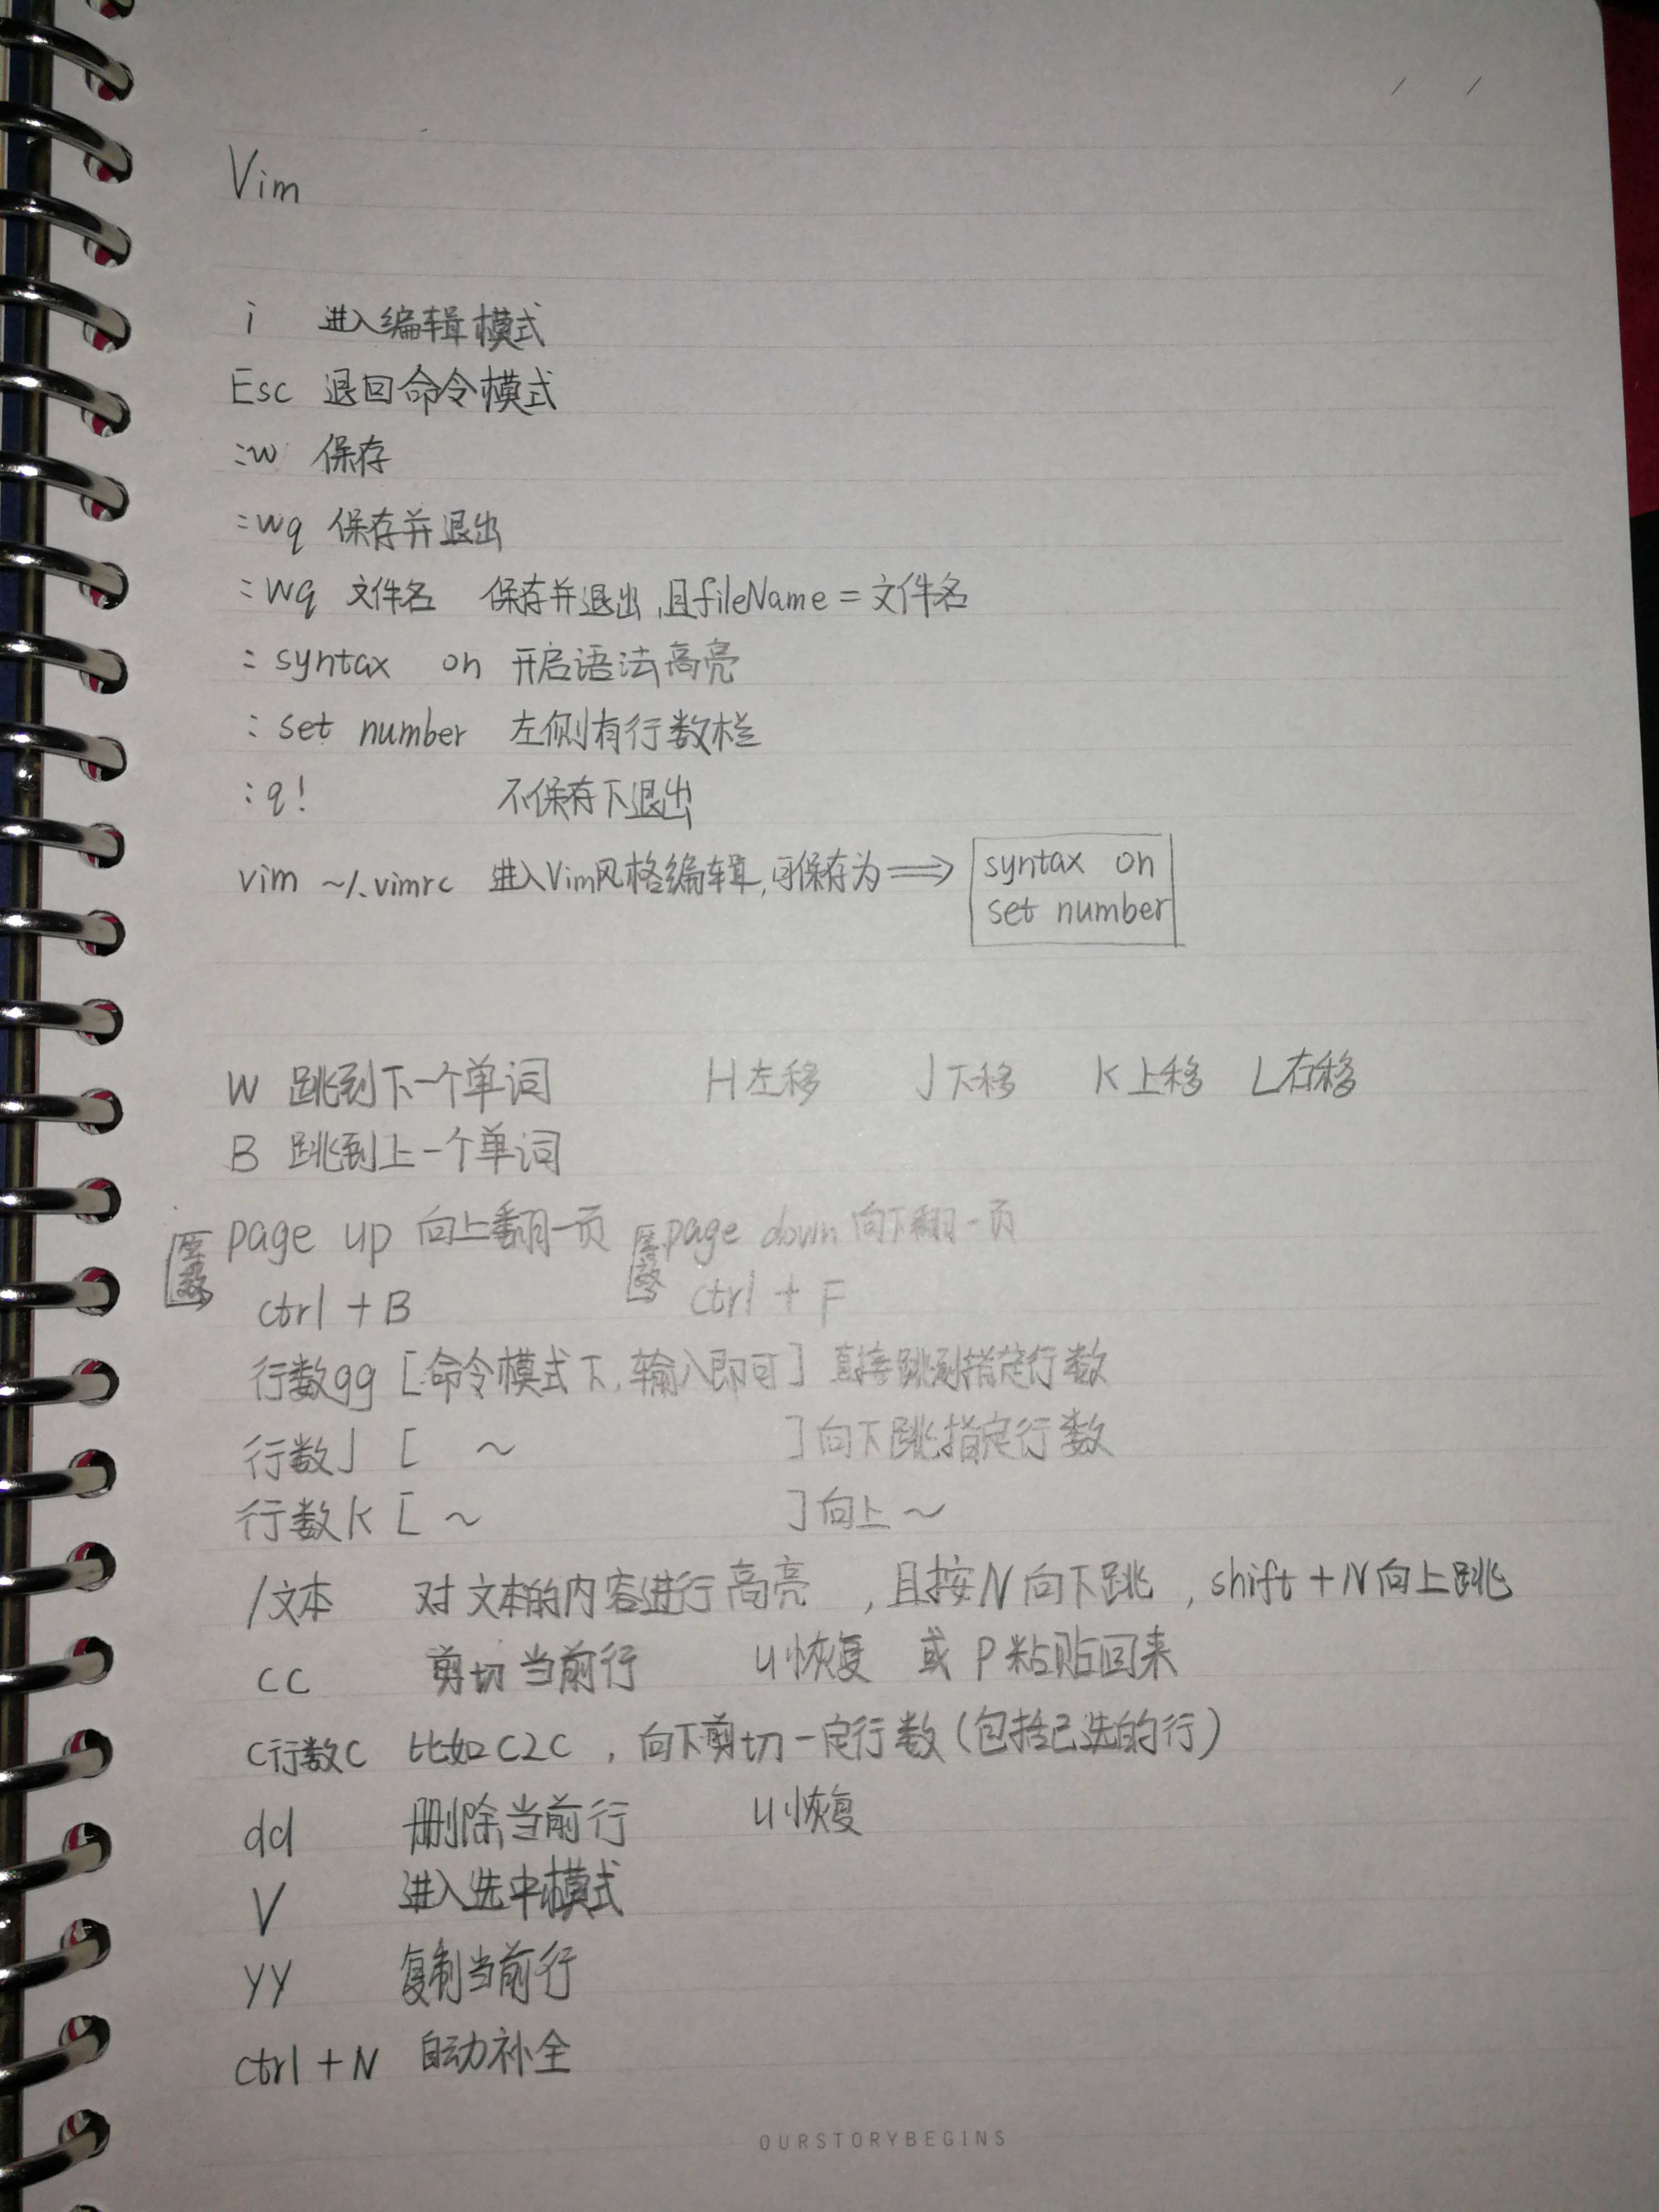 / /
Vim
i 进入编辑模式
Esc 退回命令模式
:w 保存
:wq 保存并退出
:wq 文件名 保存并退出,且fileName=文件名
: syntax on 开启语法高亮
: set number 左侧有行数栏
:q! 不保存下退出
vim ~/.vimrc 进入Vim风格编辑,可保存为⟹ syntax on
set number
W 跳到下一个单词 H左移 J下移 K上移 L右移
B 跳到上一个单词
page up 向上翻一页 page down 向下翻一页
ctrl+B ctrl+F
行数gg [命令模式下,输入即可] 直接跳到指定行数
行数J [ ~ ]向下跳指定行数
行数K [ ~ ]向上~
/文本 对文本的内容进行高亮 ,且按N向下跳 ,shift+N向上跳
cc 剪切当前行 U恢复 或 P粘贴回来
C行数C 比如C2C ,向下剪切一定行数(包括已选的行)
dd 删除当前行 U恢复
V 进入选中模式
yy 复制当前行
ctrl+N 自动补全
OURSTORYBEGINS